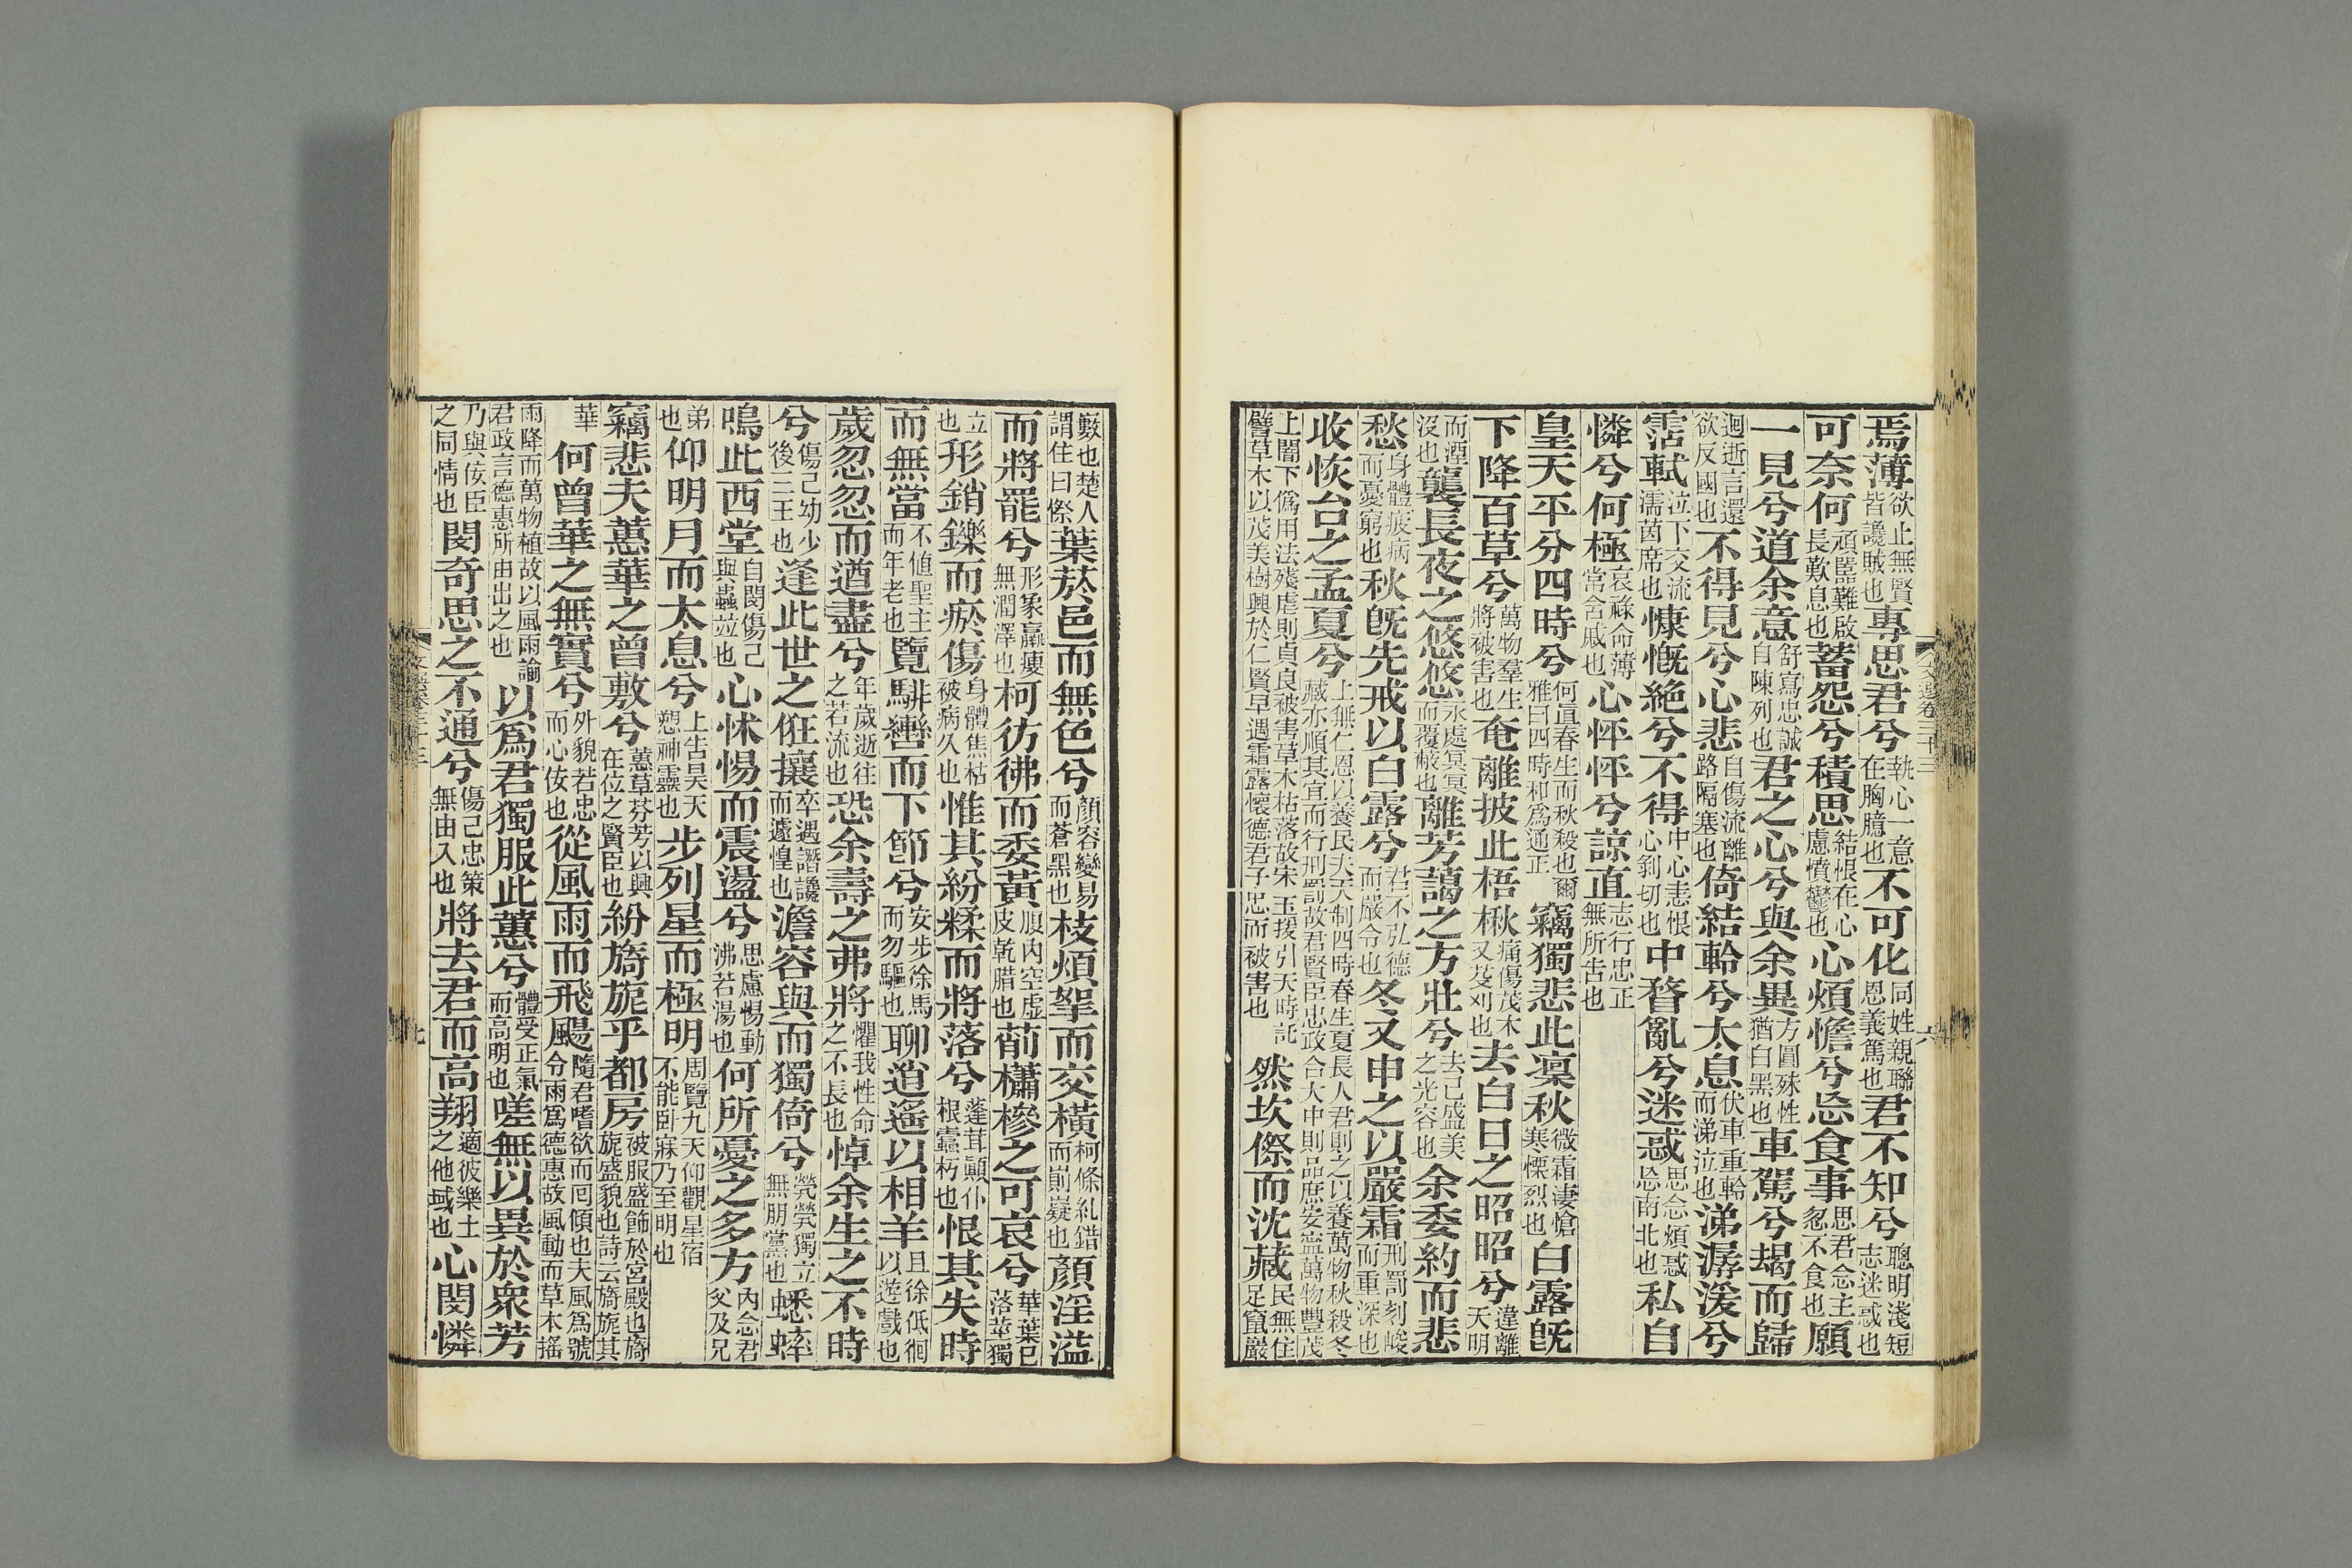 焉薄欲止無賢皆讒賊也專思君兮執心一意在胸臆也不可化同姓親聯恩義篤也君不知兮聰明淺短志迷惑也
可奈何頑嚚難啟長歎息也蓄怨兮積思結恨在心慮憤鬱也心煩憺兮忘食事思君念主忽不食也願
一見兮道余意舒寫忠誠自陳列也君之心兮與余異方圓殊性猶白黑也車駕兮朅而歸
迴逝言還欲反國也不得見兮心悲自傷流離路隔塞也倚結軨兮太息伏車重軨而涕泣也涕潺湲兮
霑軾泣下交流濡茵席也慷慨絕兮不得中心恚恨心剝切也中瞀亂兮迷惑思念煩惑忘南北也私自
憐兮何極哀祿命薄常含戚也心怦怦兮諒直志行忠正無所告也
皇天平分四時兮何直春生而秋殺也爾雅曰四時和爲通正竊獨悲此凜秋微霜淒愴寒慄烈也白露旣
下降百草兮萬物羣生將被害也奄離披此梧楸痛傷茂木又芟刈也去白日之昭昭兮違離天明
而湮沒也襲長夜之悠悠永處冥冥而覆蔽也離芳藹之方壯兮去己盛美之光容也余委約而悲
愁身體疲病而憂窮也秋旣先戒以白露兮君不弘德而嚴令也冬又申之以嚴霜刑罰刻峻而重深也
收恢台之孟夏兮上無仁恩以養民夫天制四時春生夏長人君則之以養萬物秋殺冬藏亦順其宜而行刑罰故君賢臣忠政合大中則品庶安寍萬物豐茂
上闇下僞用法殘虐則貞良被害草木枯落故宋玉援引天時託譬草木以茂美樹興於仁賢早遇霜露懷德君子忠而被害也然坎傺而沈藏民無住足竄巖
藪也楚人謂住曰傺葉菸邑而無色兮顏容變易而蒼黑也枝煩挐而交橫柯條糺錯而崱嶷也顏淫溢
而將罷兮形象羸瘦無潤澤也柯彷彿而委黃腹內空虛皮乾腊也萷櫹槮之可哀兮華葉已落莖獨
立也形銷鑠而瘀傷身體焦枯被病久也惟其紛糅而將落兮蓬茸顚仆根蠹朽也恨其失時
而無當不值聖主而年老也覽騑轡而下節兮安步徐馬而勿驅也聊逍遙以相羊且徐低徊以遊戲也
歲忽忽而遒盡兮年歲逝往之若流也恐余壽之弗將懼我性命之不長也悼余生之不時
兮傷己幼少後三王也逢此世之俇攘卒遇譖讒而遽惶也澹容與而獨倚兮煢煢獨立無朋黨也蟋蟀
鳴此西堂自閔傷己與蟲竝也心怵惕而震盪兮思慮惕動沸若湯也何所憂之多方內念君父及兄
弟也仰明月而太息兮上告昊天愬神靈也步列星而極明周覽九天仰觀星宿不能臥寐乃至明也
竊悲夫蕙華之曾敷兮蕙草芬芳以興在位之賢臣也紛旖旎乎都房被服盛飾於宮殿也旖旎盛貌也詩云旖旎其
華何曾華之無實兮外貌若忠而心佞也從風雨而飛颺隨君嗜欲而囘傾也夫風爲號令雨爲德惠故風動而草木搖
雨降而萬物植故以風雨諭君政言德惠所由出之也以爲君獨服此蕙兮體受正氣而高明也嗟無以異於衆芳
乃與佞臣之同情也閔奇思之不通兮傷己忠策無由入也將去君而高翔適彼樂土之他域也心閔憐